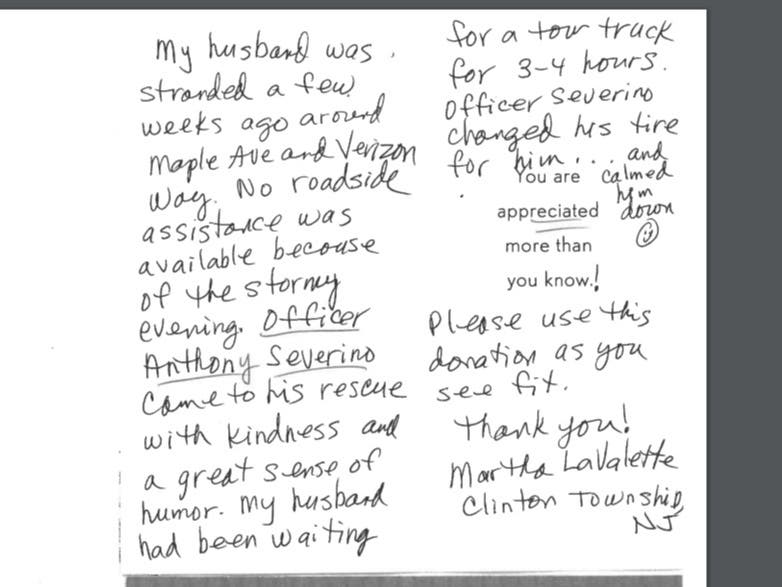 My husband was
stranded a few
weeks ago around
Maple Ave and Verizon
Way. No roadside
assistance was
available because
of the stormy
evening. Officer
Anthony Severino
came to his rescue
with kindness and
a great sense of
humor. My husband
had been waiting
for a tow truck
for 3-4 hours.
Officer Severino
changed his tire
for him... and
calmed
him
down
☺
You are
appreciated
more than
you know.!
Please use this
donation as you
see fit.
Thank you!
Martha LaValette
Clinton Township,
NJ